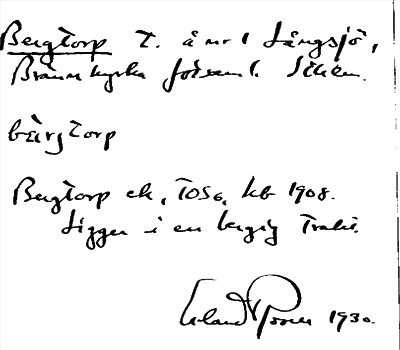 Bergtorp t. å nr 1 Långsjö,
Brännkyrka förseml. Sthlm.
bärgtorp
Bergtorp ek, TOS6, kb 1908.
Ligger i en bergig trakt.
Erland Rosell 1930.